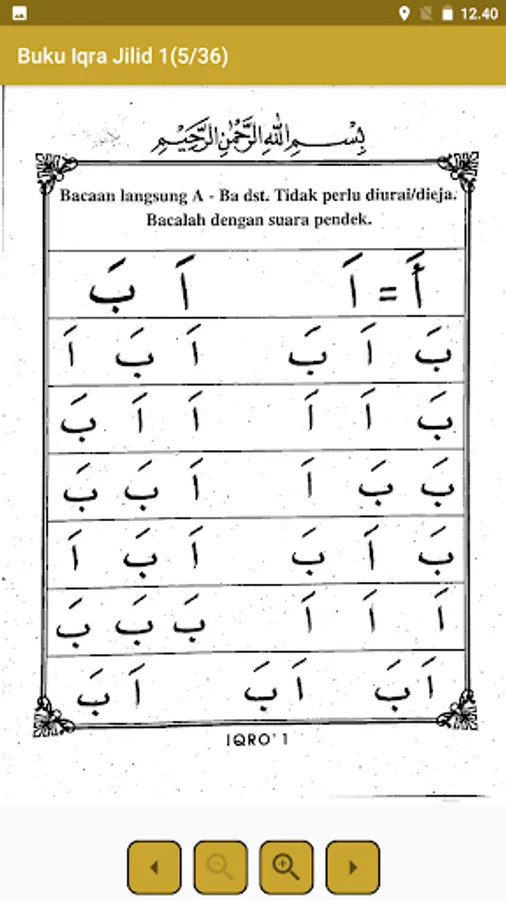 12.40
Buku Iqra Jilid 1(5/36)
بِسْمِ اللهِ الرَّحْمٰنِ الرَّحِيْمِ
Bacaan langsung A - Ba dst. Tidak perlu diurai/dieja.
Bacalah dengan suara pendek.
أَ = اَ اَ بَ
بَ اَ بَ اَ بَ اَ
بَ اَ اَ اَ اَ بَ
بَ بَ اَ اَ بَ بَ
بَ اَ بَ اَ بَ اَ
اَ اَ اَ بَ بَ بَ
اَ بَ اَ بَ اَ بَ
IQRO' 1